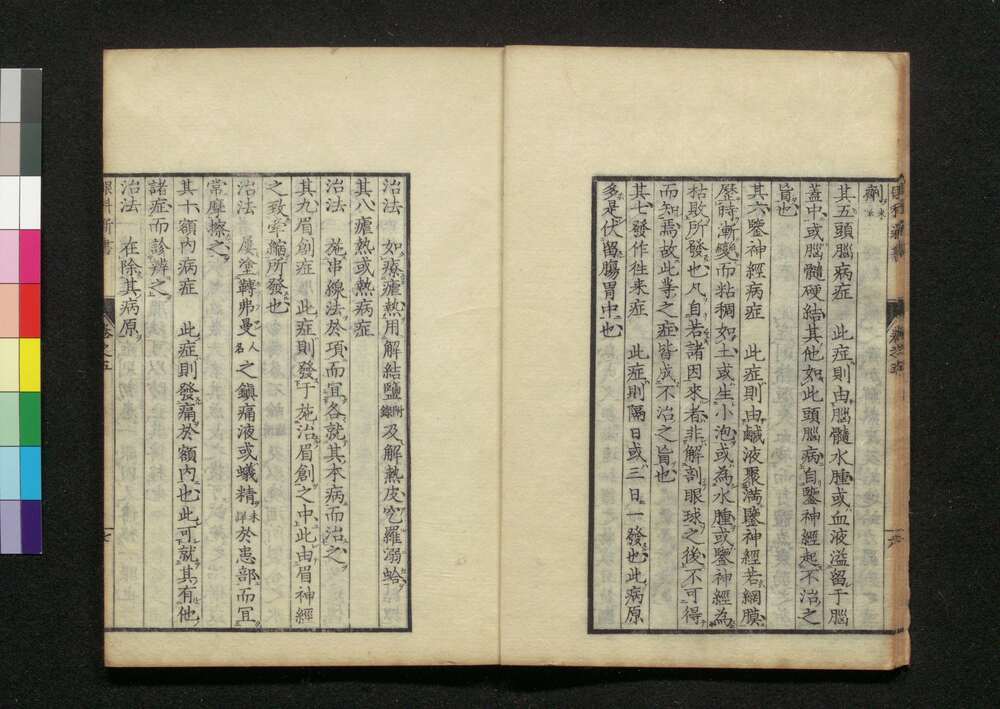 劑
其五頭腦病症　此症則由腦髓水腫或血液溢留于腦
蓋中或腦髓硬結其他如此頭腦病自鑒神經起不治之
旨也
其六鑒神經病症　此症則由鹹液聚滿鑒神經若網膜
歷時漸變而粘稠如土或生小泡或為水腫或鑒神經為
粘敗所發也凡自若諸因來者非解剖眼球之後不可得
而知焉故此等之症皆成不治之旨也
其七發作徃來症　此症則隔日或三日一發也此病原
多是伏留腸胃中也
治法　如療瘧熱用解結鹽附錄及解熱皮冦羅溺蛤
其八瘧熱或熱病症
治法　施串線法於項而宜各就其本病而治之
其九眉創症　此症則發于施治眉創之中此由眉神經
之致牽縮所發也
治法　屢塗轉弗曼人名之鎮痛液或蟻精未詳於患部而宜
常摩擦之
其十額內病症　此症則發痛於額內也此可就其有他
諸症而診辨之
治法　在除其病原
眼科新書　卷之五　七